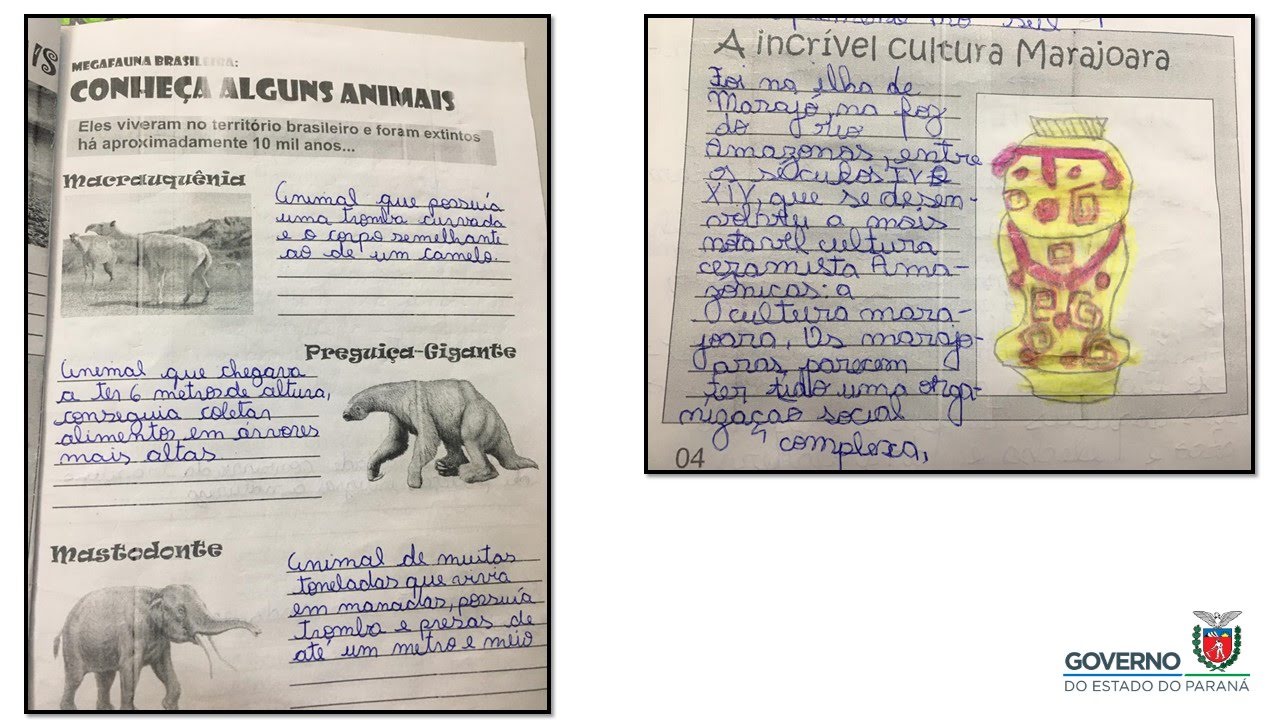 MEGAFAUNA BRASILEIRA:
CONHEÇA ALGUNS ANIMAIS
Eles viveram no território brasileiro e foram extintos
há aproximadamente 10 mil anos...
Macrauquênia
Animal que possuía
uma tromba curvada
e o corpo semelhante
ao de um camelo.
Preguiça-Gigante
Animal que chegava
a ter 6 metros de altura,
conseguia coletar
alimentos em árvores
mais altas
Mastodonte
Animal de muitas
toneladas que vivia
em manadas, possuía
tromba e presas de
até um metro e meio
sul
A incrível cultura Marajoara
Foi na ilha de
Marajó, na foz
do rio
Amazonas, entre
os séculos IV e
XIV, que se desen-
volveu a mais
notável cultura
ceramista Ama-
zônicas: a
cultura mara-
joara, Os marajo-
aras, parecem
ter tido uma orga-
nização social
complexa,
04
GOVERNO
DO ESTADO DO PARANÁ